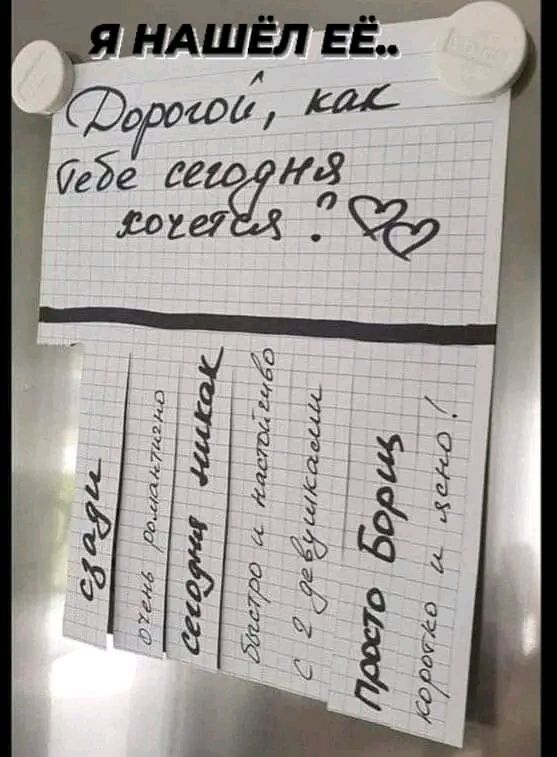 Я НАШЁЛ ЕЁ..
Дорогой, как
тебе сегодня
хочется?
сзади
очень романтично
сегодня никак
быстро и настойчиво
с 2 девушками
Просто Борщ
коротко и ясно!